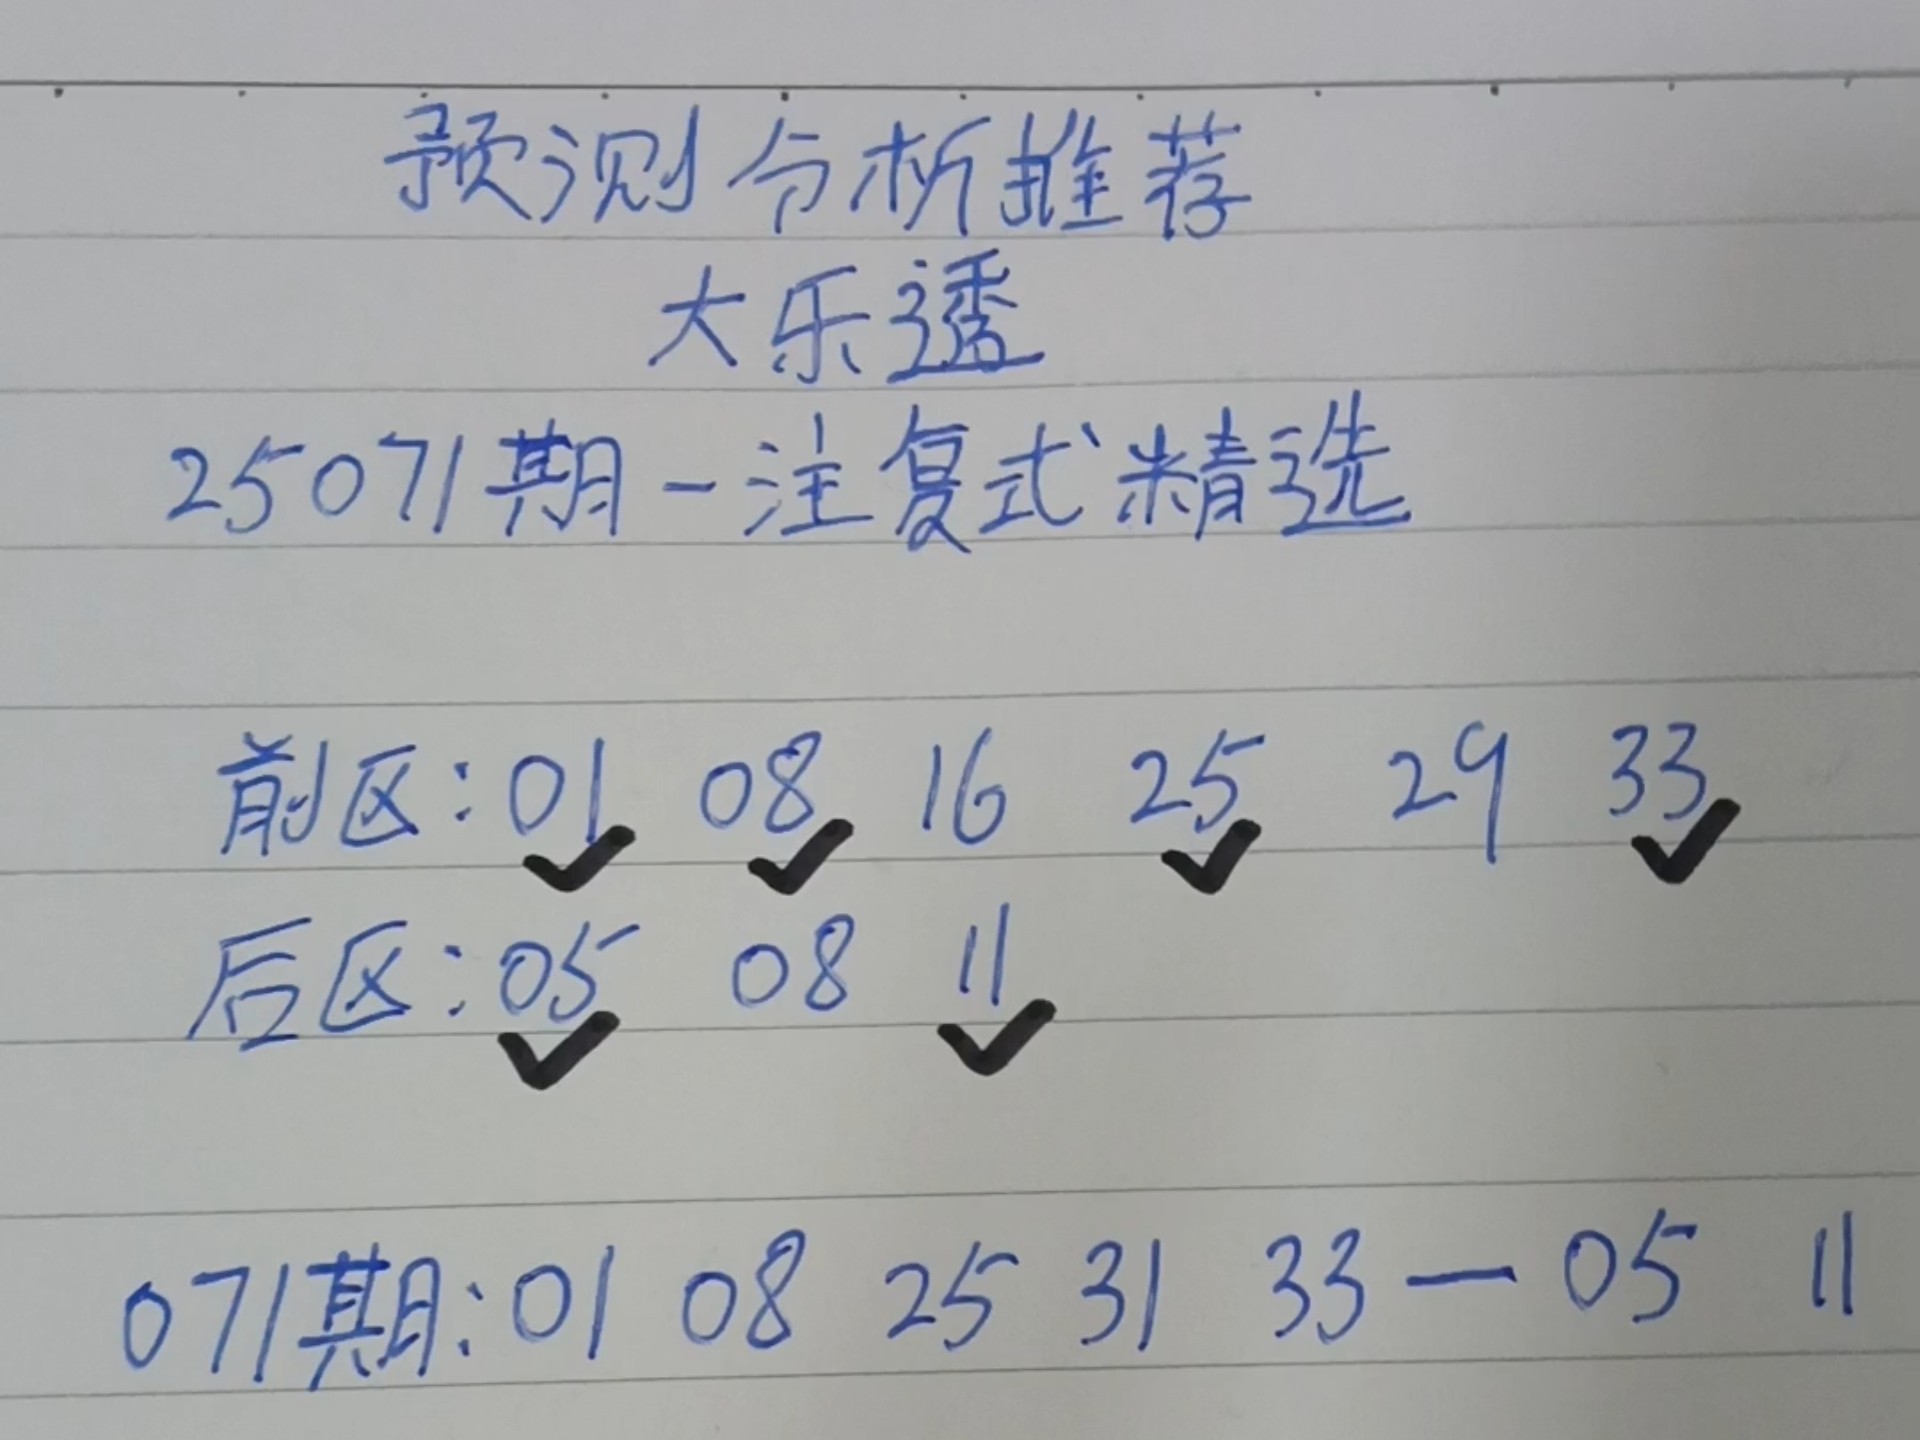 预测分析推荐
大乐透
25071期一注复式精选
前区:01 08 16 25 29 33
后区:05 08 11
071期:01 08 25 31 33—05 11